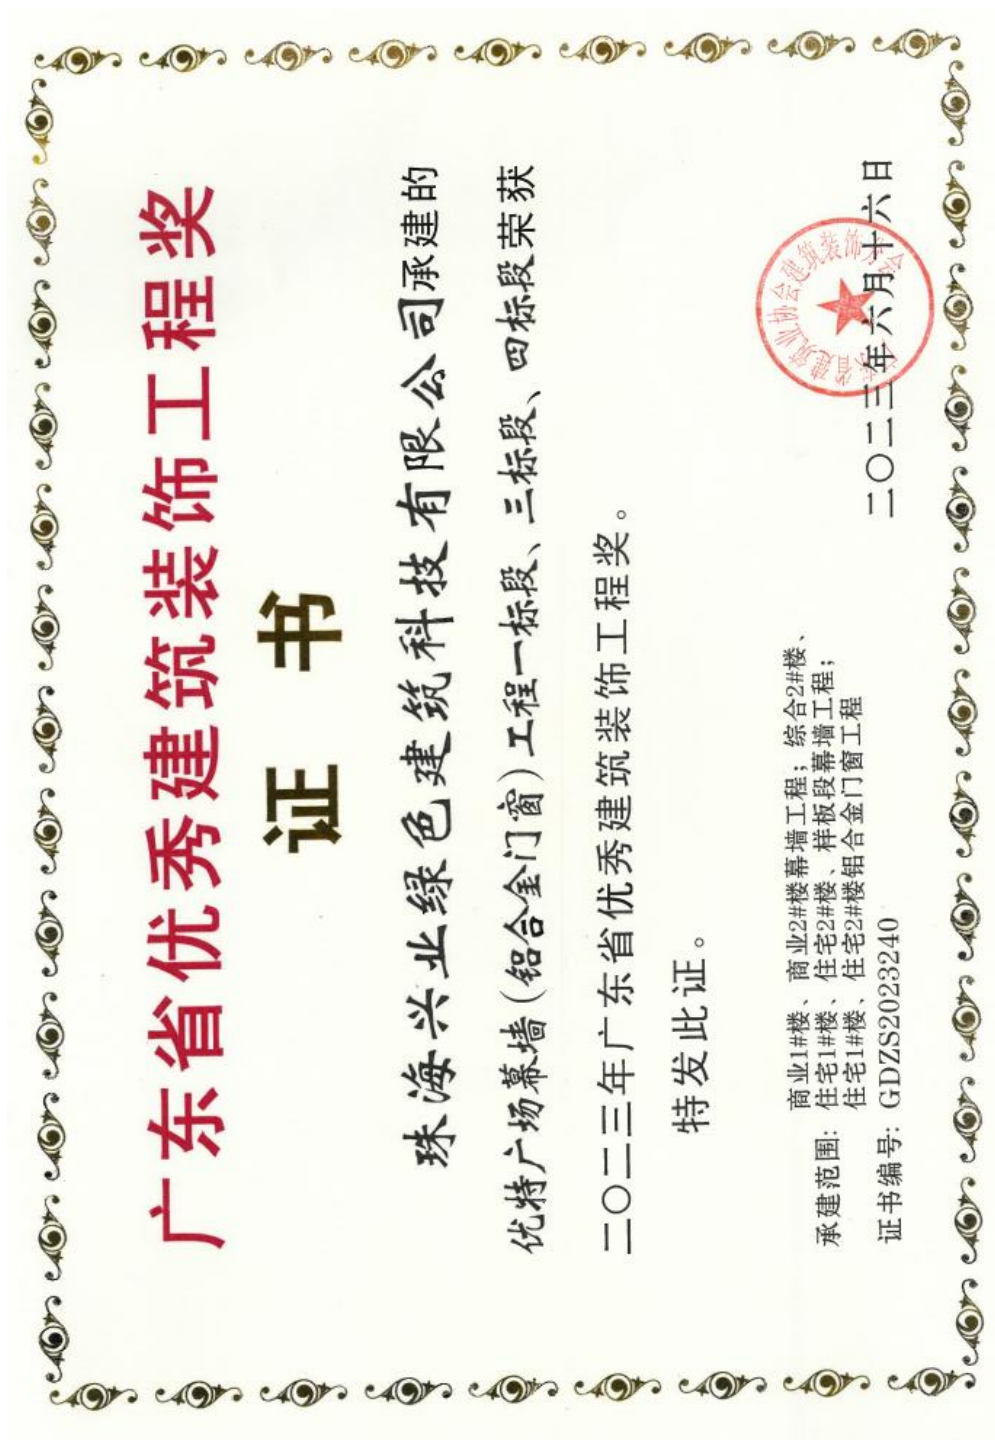 广东省优秀建筑装饰工程奖
证书
珠海兴业绿色建筑科技有限公司承建的
优特广场幕墙(铝合金门窗)工程一标段、三标段、四标段荣获
二〇二三年广东省优秀建筑装饰工程奖。
特发此证。
承建范围：
商业1#楼、商业2#楼幕墙工程；综合2#楼、
住宅1#楼、住宅2#楼、样板段幕墙工程；
住宅1#楼、住宅2#楼铝合金门窗工程
证书编号：GDZS2023240
广东省建筑业协会建筑装饰分会
二〇二三年六月十六日